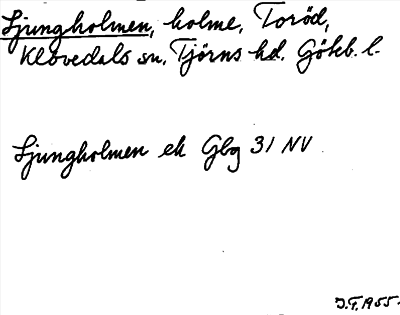 Ljungholmen, holme, Toröd,
Klövedals sn, Tjörns hd. Göteb. l.
Ljungholmen ek Gbg 31 NV
J.F. 1955.